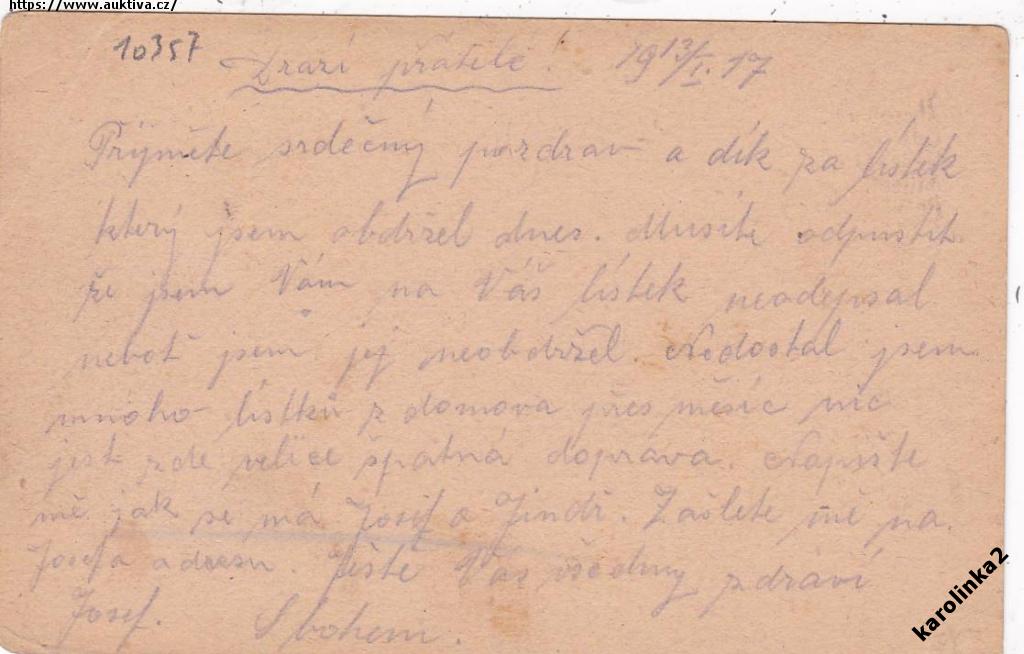 https://www.auktiva.cz/
10357
Drazí přátelé! 1913/I.17
Prijměte srdečný pozdrav a dík za lístek
který jsem obdržel dnes. Musíte odpustit
že jsem Vám na Váš lístek neodepsal
neboť jsem jej neobdržel. Nedostal jsem
mnoho lístků z domova přes měsíc nic
jest zde velice špatná doprava. Napište
mě jak se má Josef a Jindř. Zašlete mě na
Josefa adresu Ještě Vás všechny zdraví
Josef. S bohem.
karolinka2